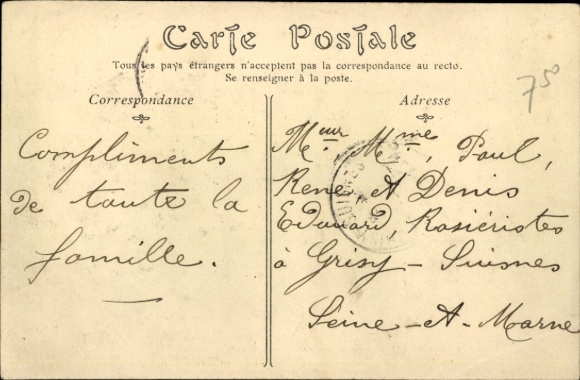 Carte Postale
Tous les pays étrangers n'acceptent pas la correspondance au recto.
Se renseigner à la poste.
Correspondance
Compliments
de toute la
famille.
Adresse
7 50
Meur Mme, Paul,
René et Denis
Edouard, Rosiéristes
à Grisy-Suisnes
Seine-et-Marne